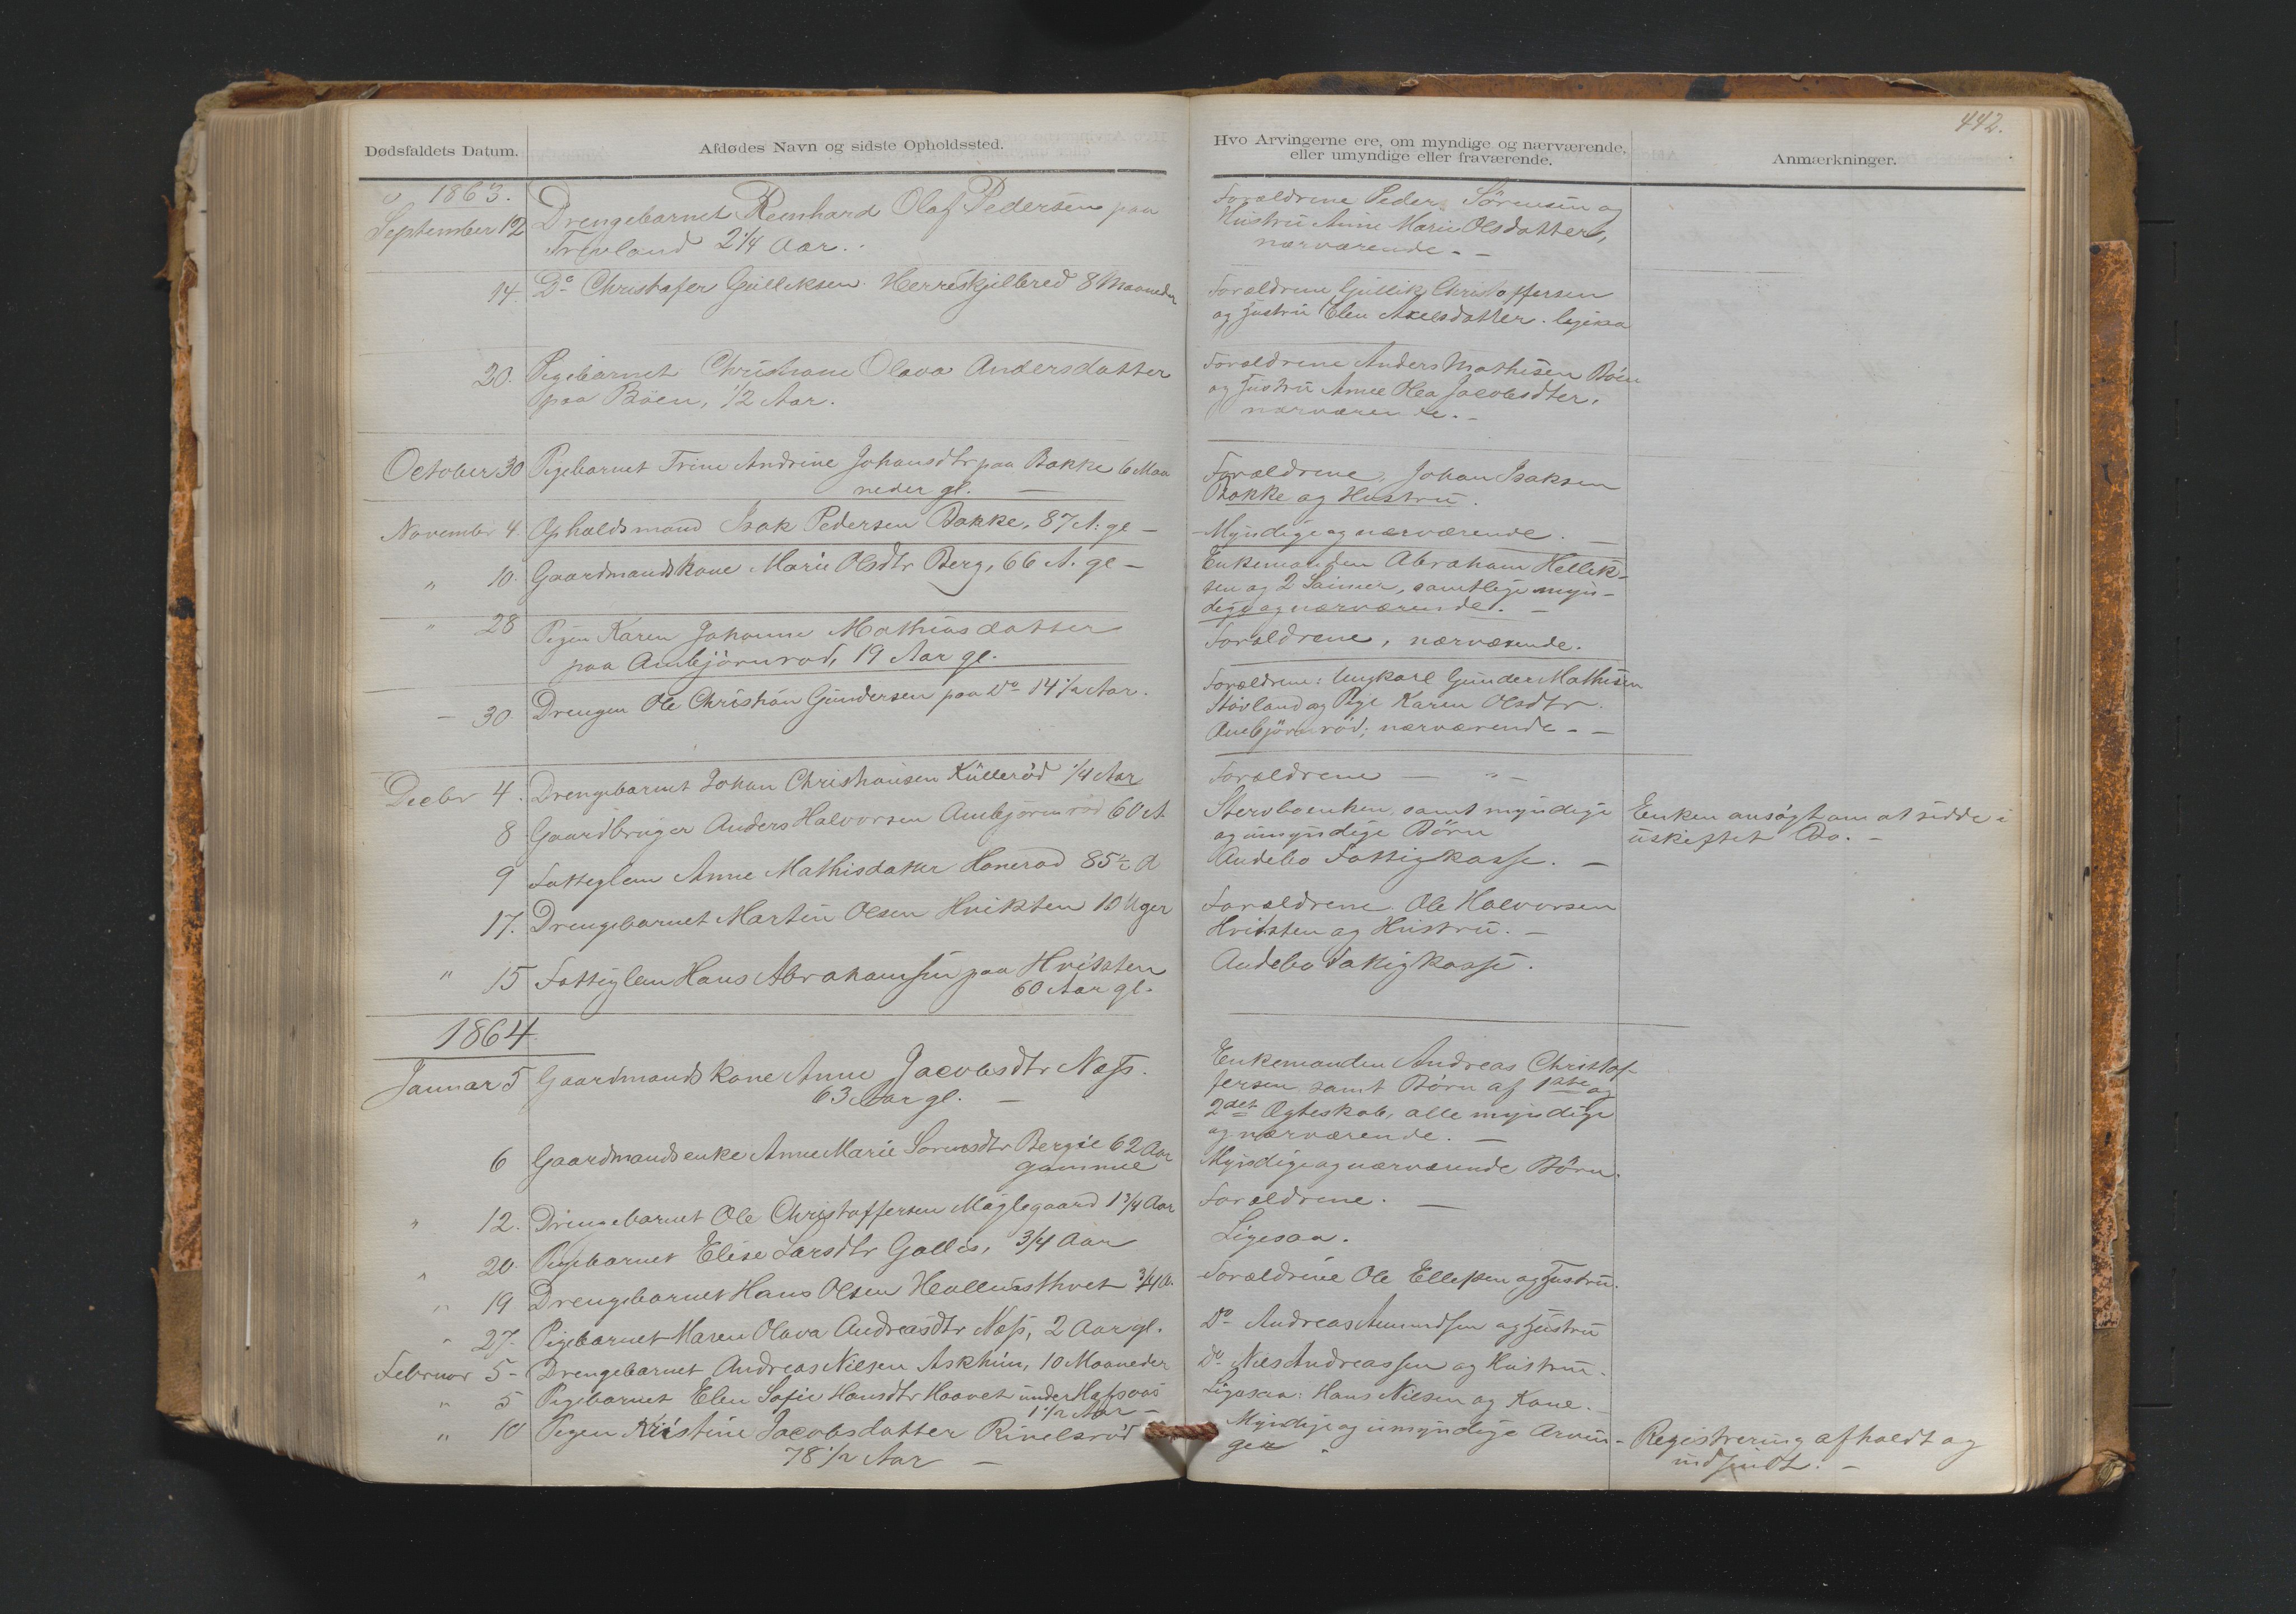 442.
Dødsfaldets Datum.
Afdødes Navn og sidste Opholdssted.
Hvo Arvingerne ere, om myndige og nærværende,
eller umyndige eller fraværende.
Anmærkninger.
1863.
September 12 Drengebarnet Reinhard Olaf Pedersen paa
Trevland 2 1/4 Aar.
Forældrene Peder Sörensen og
Hustru Anne Marie Olsdatter,
nærværende. -
14. Do Christofer Gulliksen Herreskjellered 8 Maaneder
Forældrene Gullik Christoffersen
og Hustru Elen Axelsdatter. ligesaa
20. Pigebarnet Christiane Olava Andersdatter
paa Böen, 1/2 Aar.
Forældrene Anders Mathisen Böen
og Hustru Anne Olea Jacobsdter,
nærværende. -
October 30 Pigebarnet Trine Andrine Johansdtr paa Bakke 6 Maa
neder gl. -
Forældrene, Johan Isaksen
Bakke og Hustru.
November 4. Opholdsmand Isak Pedersen Bakke, 87 A. gl -
Myndige og nærværende. -
" 10. Gaardmandskone Marie Olsdtr Berg, 66 A. gl -
Enkemanden Abraham Hellik-
sen og 2 Sönner, samtlige myn-
dige og nærværende. -
" 28 Pigen Karen Johanne Mathiasdatter
paa Ambjörnrød, 19 Aar gl.
Forældrene, nærværende.
- 30. Drengen Ole Christian Gundersen paa Do 14 1/2 Aar.
Forældrene: Ungkarl Gunder Mathisen
Stövland og Pige Karen Olsdtr.
Ambjörnröd; nærværende - -
Decbr 4. Drengebarnet Johan Christiansen Kulleröd 1/4 Aar
Forældrene - " -
8 Gaardbruger Anders Halvorsen Ambjörnröd 60 A
Stervboenken, samt myndige
og umyndige Börn
Enken ansögt om at sidde i
uskiftet Bo. -
9 Fattiglem Anne Mathisdatter Honerød 85 1/2 A
Andebo Fattigkasse. -
17. Drengebarnet Martin Olsen Hvitsten 10 Uger
Forældrene Ole Halvorsen
Hvitsten og Hustru. -
" 15 Fattiglem Hans Abrahamsen paa Hvitsten
60 Aar gl.
Andebo Fattigkasse.
1864
Januar 5 Gaardmandskone Anne Jacobsdtr Næss.
63 Aar gl. -
Enkemanden Andreas Christof-
fersen samt Börn af 1ste og
2det Ægteskab, alle myndige
og nærværende. -
6 Gaardmandsenke Anne Marie Sorensdtr Bergie 62 Aar
gammel
Myndige og nærværende Börn.
" 12. Drengebarnet Ole Christoffersen Möglegaard 1 3/4 Aar
Forældrene. -
" 20. Pigebarnet Elise Larsdtr Gallis, 3/4 Aar
Ligesaa.
" 19 Drengebarnet Hans Olsen Hallensthvet 3/4 A.
Forældrene Ole Ellefsen og Hustru.
" 27. Pigebarnet Maren Olava Andreasdtr Næss, 2 Aar gl.
Do Andreas Amundsen og Hustru
Februar 5 - Drengebarnet Andreas Nilsen Askhim, 10 Maaneder
Do Nils Andreassen og Hustru.
" 5 Pigebarnet Elen Sofie Hansdtr Haavet under Hafsaas
1 1/2 Aar -
Ligesaa: Hans Nilsen og Kone. -
" 10 Pigen Kristine Jacobsdatter Rivelsröd
78 1/2 Aar -
Myndige og umyndige Arvin-
ger
Registrering afholdt og
indsendt. -